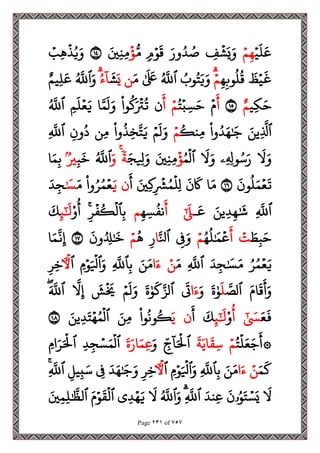 عَلَيْهِمْ وَيَشْفِ صُدُورَ قَوْمٖ مُّؤْمِنِينَ ١٤ وَيُذْهِبْ
غَيْظَ قُلُوبِهِمْۗ وَيَتُوبُ ٱللَّهُ عَلَىٰ مَن يَشَآءُۗ وَٱللَّهُ عَلِيمٌ
حَكِيمٌ ١٥ أَمْ حَسِبْتُمْ أَن تُتْرَكُوا۟ وَلَمَّا يَعْلَمِ ٱللَّهُ
ٱلَّذِينَ جَٰهَدُوا۟ مِنكُمْ وَلَمْ يَتَّخِذُوا۟ مِن دُونِ ٱللَّهِ
وَلَا رَسُولِهِۦ وَلَا ٱلْمُؤْمِنِينَ وَلِيجَةٗۚ وَٱللَّهُ خَبِيرُۢ بِمَا
تَعْمَلُونَ ١٦ مَا كَانَ لِلْمُشْرِكِينَ أَن يَعْمُرُوا۟ مَسَٰجِدَ
ٱللَّهِ شَٰهِدِينَ عَلَىٰٓ أَنفُسِهِم بِٱلْكُفْرِۚ أُو۟لَٰٓئِكَ
حَبِطَتْ أَعْمَٰلُهُمْ وَفِي ٱلنَّارِ هُمْ خَٰلِدُونَ ١٧ إِنَّمَا
يَعْمُرُ مَسَٰجِدَ ٱللَّهِ مَنْ ءَامَنَ بِٱللَّهِ وَٱلْيَوْمِ ٱلْأٓخِرِ
وَأَقَامَ ٱلصَّلَوٰةَ وَءَاتَى ٱلزَّكَوٰةَ وَلَمْ يَخْشَ إِلَّا ٱللَّهَۖ
فَعَسَىٰٓ أُو۟لَٰٓئِكَ أَن يَكُونُوا۟ مِنَ ٱلْمُهْتَدِينَ ١٨
۞ أَجَعَلْتُمْ سِقَايَةَ ٱلْحَآجِّ وَعِمَارَةَ ٱلْمَسْجِدِ ٱلْحَرَامِ
كَمَنْ ءَامَنَ بِٱللَّهِ وَٱلْيَوْمِ ٱلْأٓخِرِ وَجَٰهَدَ فِي سَبِيلِ ٱللَّهِۚ
لَا يَسْتَوُۥنَ عِندَ ٱللَّهِۗ وَٱللَّهُ لَا يَهْدِي ٱلْقَوْمَ ٱلظَّٰلِمِينَ
Page ٢٣١ of ٧٥٧